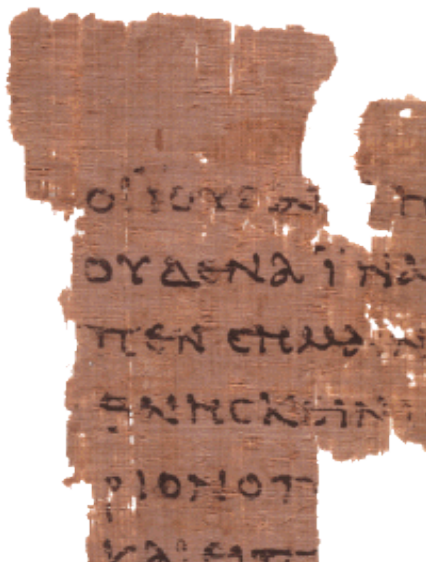 ΟΙΪΟΥΔΑΙ Η
ΟΥΔΕΝΑΪΝΑ
ΠΕΝCΗΜΑΙΝ
ΘΝΗCΚΕΙΝ
ΡΙΟΝΟΠ
ΚΑΙΕΙΠ